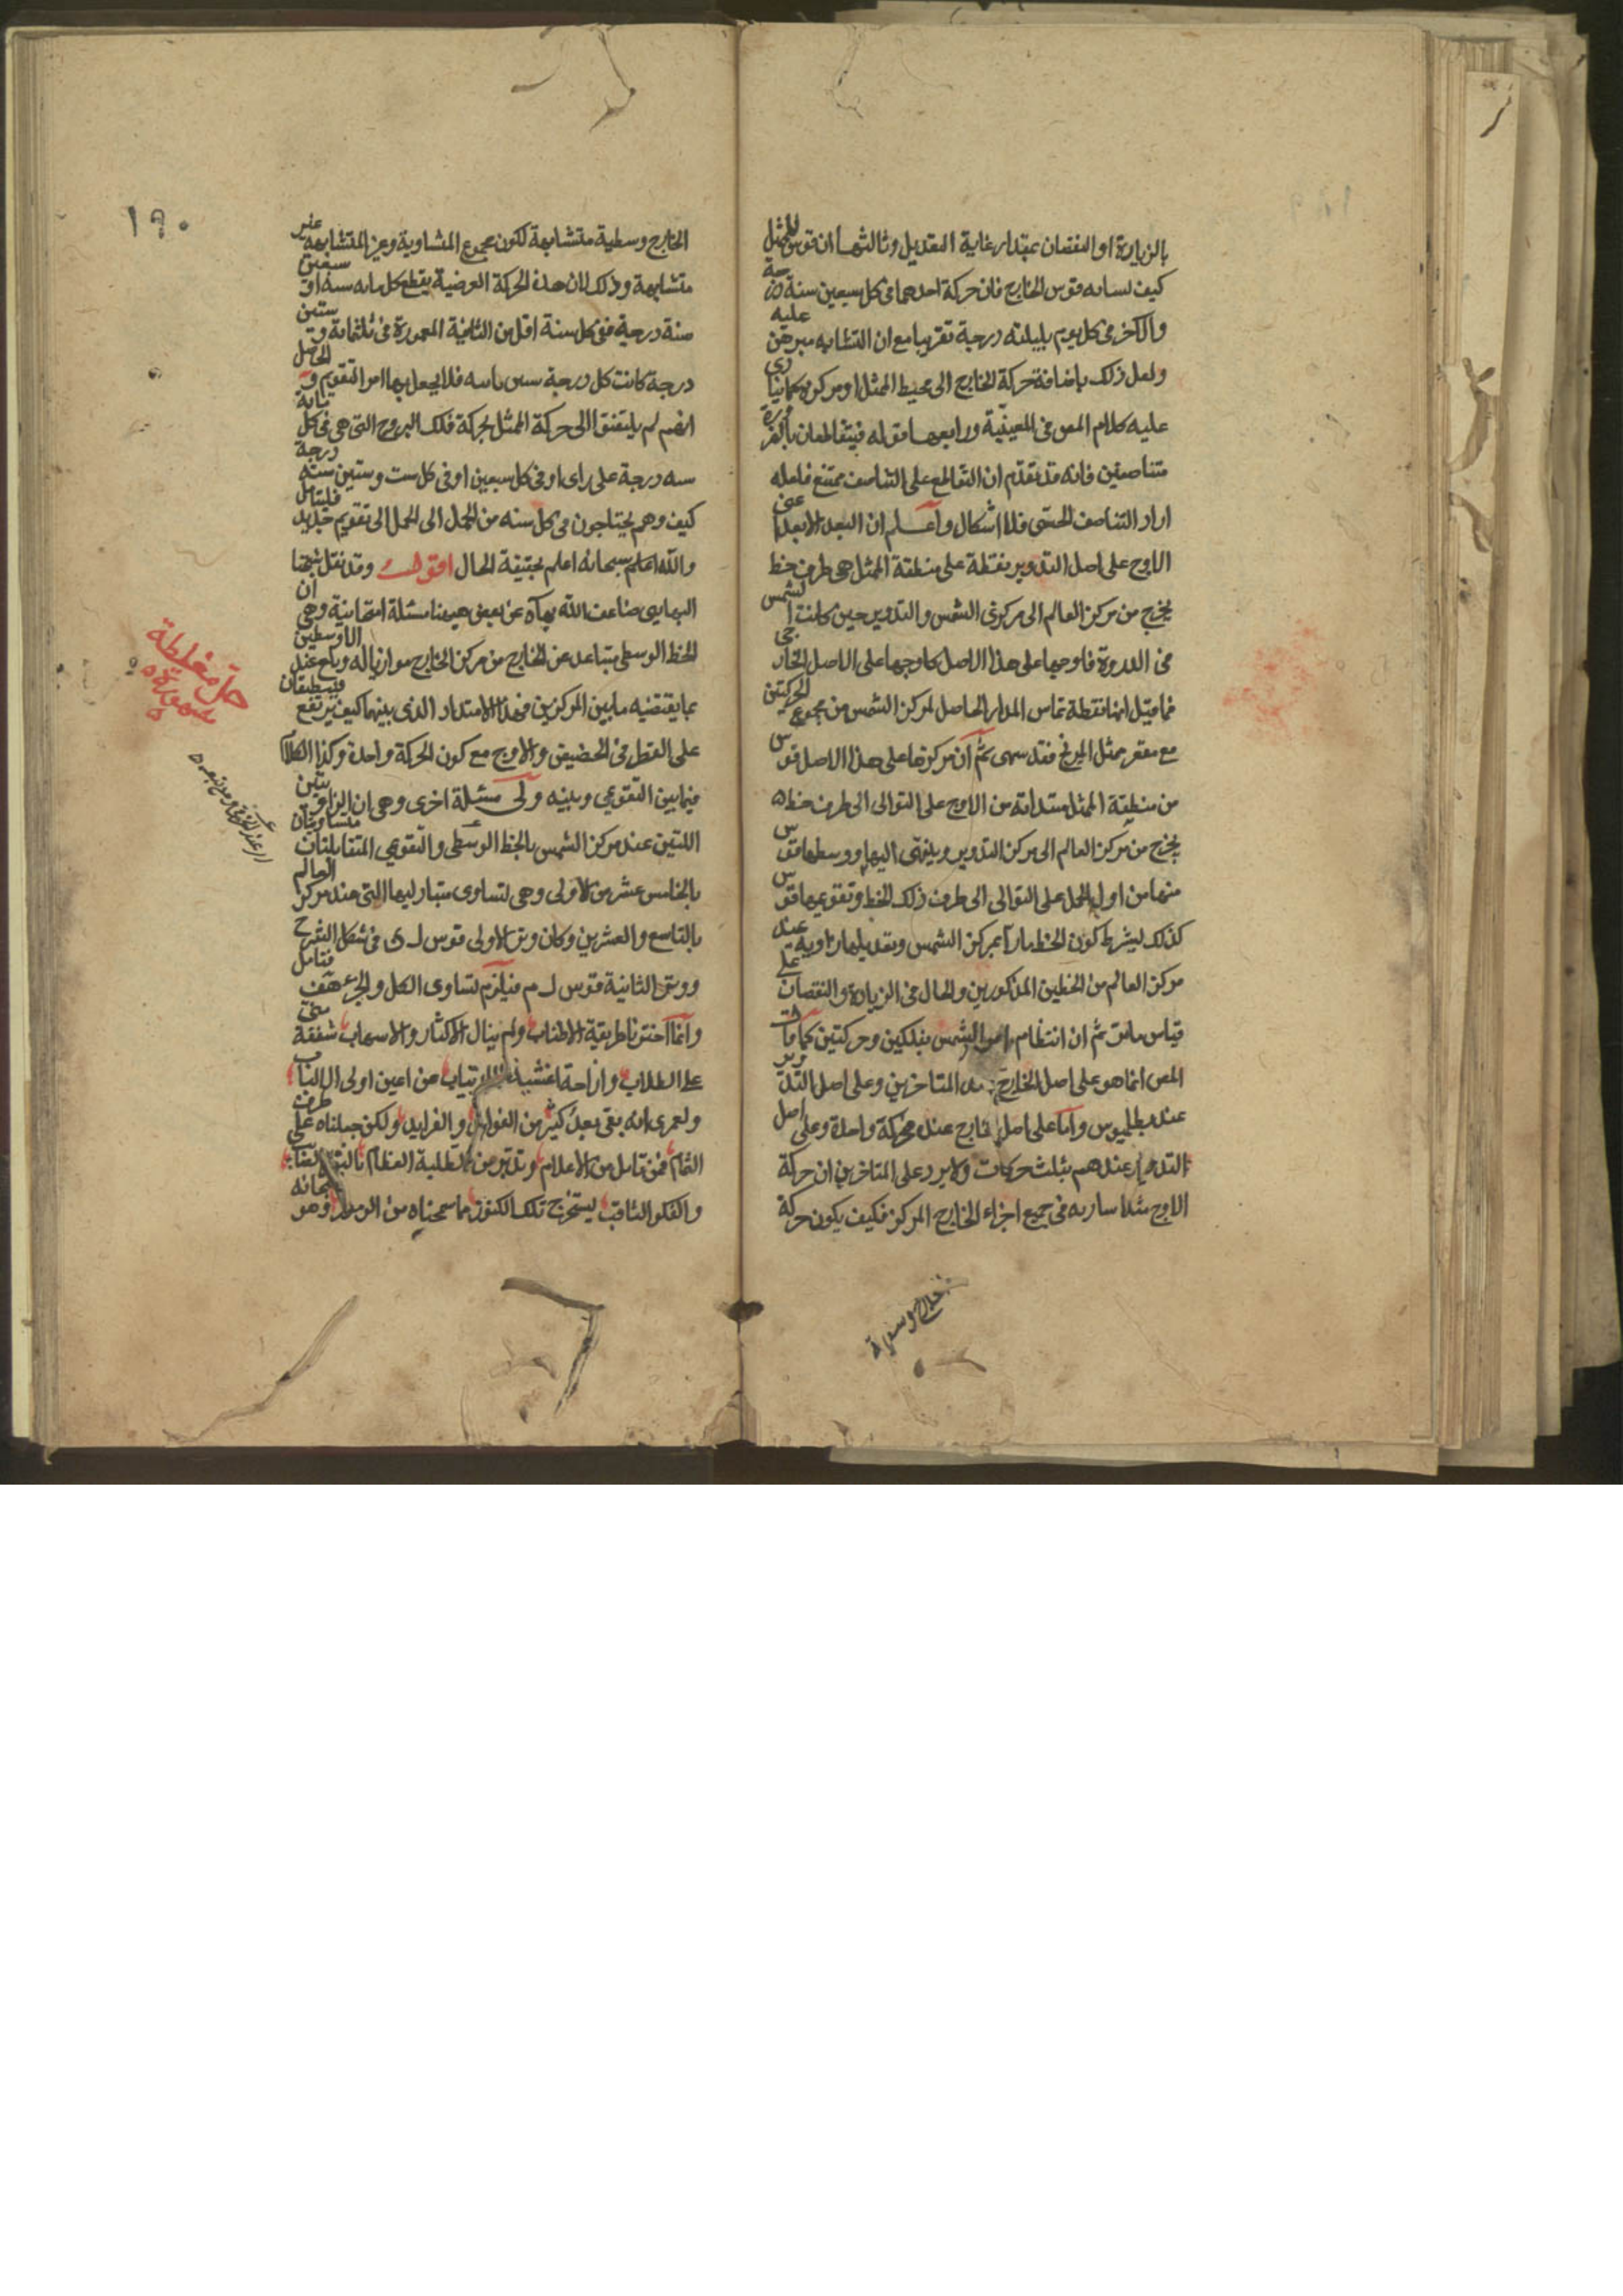 بالزيادة او النقصان بمقدار غاية التعديل وثالثها ان قوس الممثل
كيف تشابه قوس الخارج فان حركة احدهما فى كل سبعين سنة درجة
والآخر فى كل يوم بليلته درجة تقريبا مع ان التشابه مبرهن عليه
ولعل ذلك باضافة حركة الخارج الى محيط الممثل او مركزه كما ينادى
عليه كلام المص فى المعينية ورابعها قوله فيتقاطعان بالضرورة
متناصفين فانه قد تقدم ان التقاطع على التناصف ممتنع فلعله
اراد التناصف الحسى فلا اشكال واعلم ان البعد الابعد اعنى
الاوج على اصل التدوير نقطة على منطقة الممثل هى طرف خط
يخرج من مركز العالم الى مركزى الشمس والتدوير حين كانت الشمس
فى الذروة فاوجها على هذا الاصل كاوجها على الاصل الخارجى
فما قيل انها نقطة تماس المدار الحاصل لمركز الشمس من مجموع الحركتين
مع مقعر ممثل المريخ فقد سهى ثم ان مركزها على هذا الاصل قوس
من منطقة الممثل مبتدأة من الاوج على التوالى الى طرف خط
يخرج من مركز العالم الى مركز التدوير وينتهى اليها ووسطها قوس
منها من اول الحمل على التوالى الى طرف ذلك الخط وتقويمها قوس
كذلك بشرط كون الخط مارا بمركز الشمس وتعديلها زاوية عند
مركز العالم من الخطين المذكورين والحال فى الزيادة والنقصان على
قياس ما مر ثم ان انتظام امور الشمس بفلكين وحركتين كما قال
المص انما هو على اصل الخارج عند المتاخرين وعلى اصل التدوير
عند بطلميوس واما على اصل الخارج عنده فحركة واحدة وعلى اصل
التدوير عندهم بثلث حركات ولا يرد على المتاخرين ان حركة
الاوج مثلا سارية فى جميع اجزاء الخارج المركز فكيف يكون حركة
١٩٠
الخارج وسطية متشابهة لكون مجموع المتشابهة وغير المتشابهة غير
متشابهة وذلك لان هذه الحركة العرضية يقطع كل مائة سنة او سبعين
سنة درجة ففى كل سنة اقل من الثانية المعمورة فى ثلثمائة وستين
درجة كانت كل درجة فلا يجعل بها امر التقويم والحاصل
انهم لم يلتفتوا الى حركة الممثل بحركة فلك البروج التى هى فى كل مائة
سنة درجة على راى او فى كل سبعين او فى كل ست وستين سنة درجة
كيف وهم يحتاجون فى كل سنه من الحمل الى الحمل الى تقويم جديد فليتامل
والله سبحانه اعلم بحقيقة الحال اقول وقد نقل شيخنا
البهايى ضاعف الله بهاه عن بعض ههنا مسئلة امتحانية وهى ان
الخط الوسطى يتباعد عن الخارج من مركز الخارج موازيا له وبالغ عند الاوسطين
بما يقتضيه ما بين المركزين فهذا الامتداد الذى بينهما كيف يرتفع فينطبقان
على القطر فى الحضيض والاوج مع كون الحركة واحدة وكذا الكلام
فيما بين التقويمى وبينه ولى مسئلة اخرى وهى ان الزاويتين
اللتين عند مركز الشمس بالخط الوسطى والتقويمى المتقابلتان متساويتان
بالخامس عشر من الاولى وهى تساوى متبادليها التى عند مركز العالم
بالتاسع والعشرين وكان وتر الاولى قوس ل ى فى شكل الشرح
ووتر الثانية قوس ل م فيلزم تساوى الكل والجزء هف فتامل
وانما اخترنا طريقة الاطناب ولم نبال الاكثار والاسهاب شفقة منى
على الطلاب وازاحة اغشية الارتياب عن اعين اولى الالباب
ولعمرى انه بقى بعد كثير من الفوايد والفرايد ولكن جعلناه على طرف
الثمام فمن تامل من الاعلام وتدبر من الطلبة العظام
والفكر الثاقب يستخرج تلك الكنوز مما سمحناه من الرموز وهو سبحانه
حل مغلطة
مشهورة
الخارج وسطية